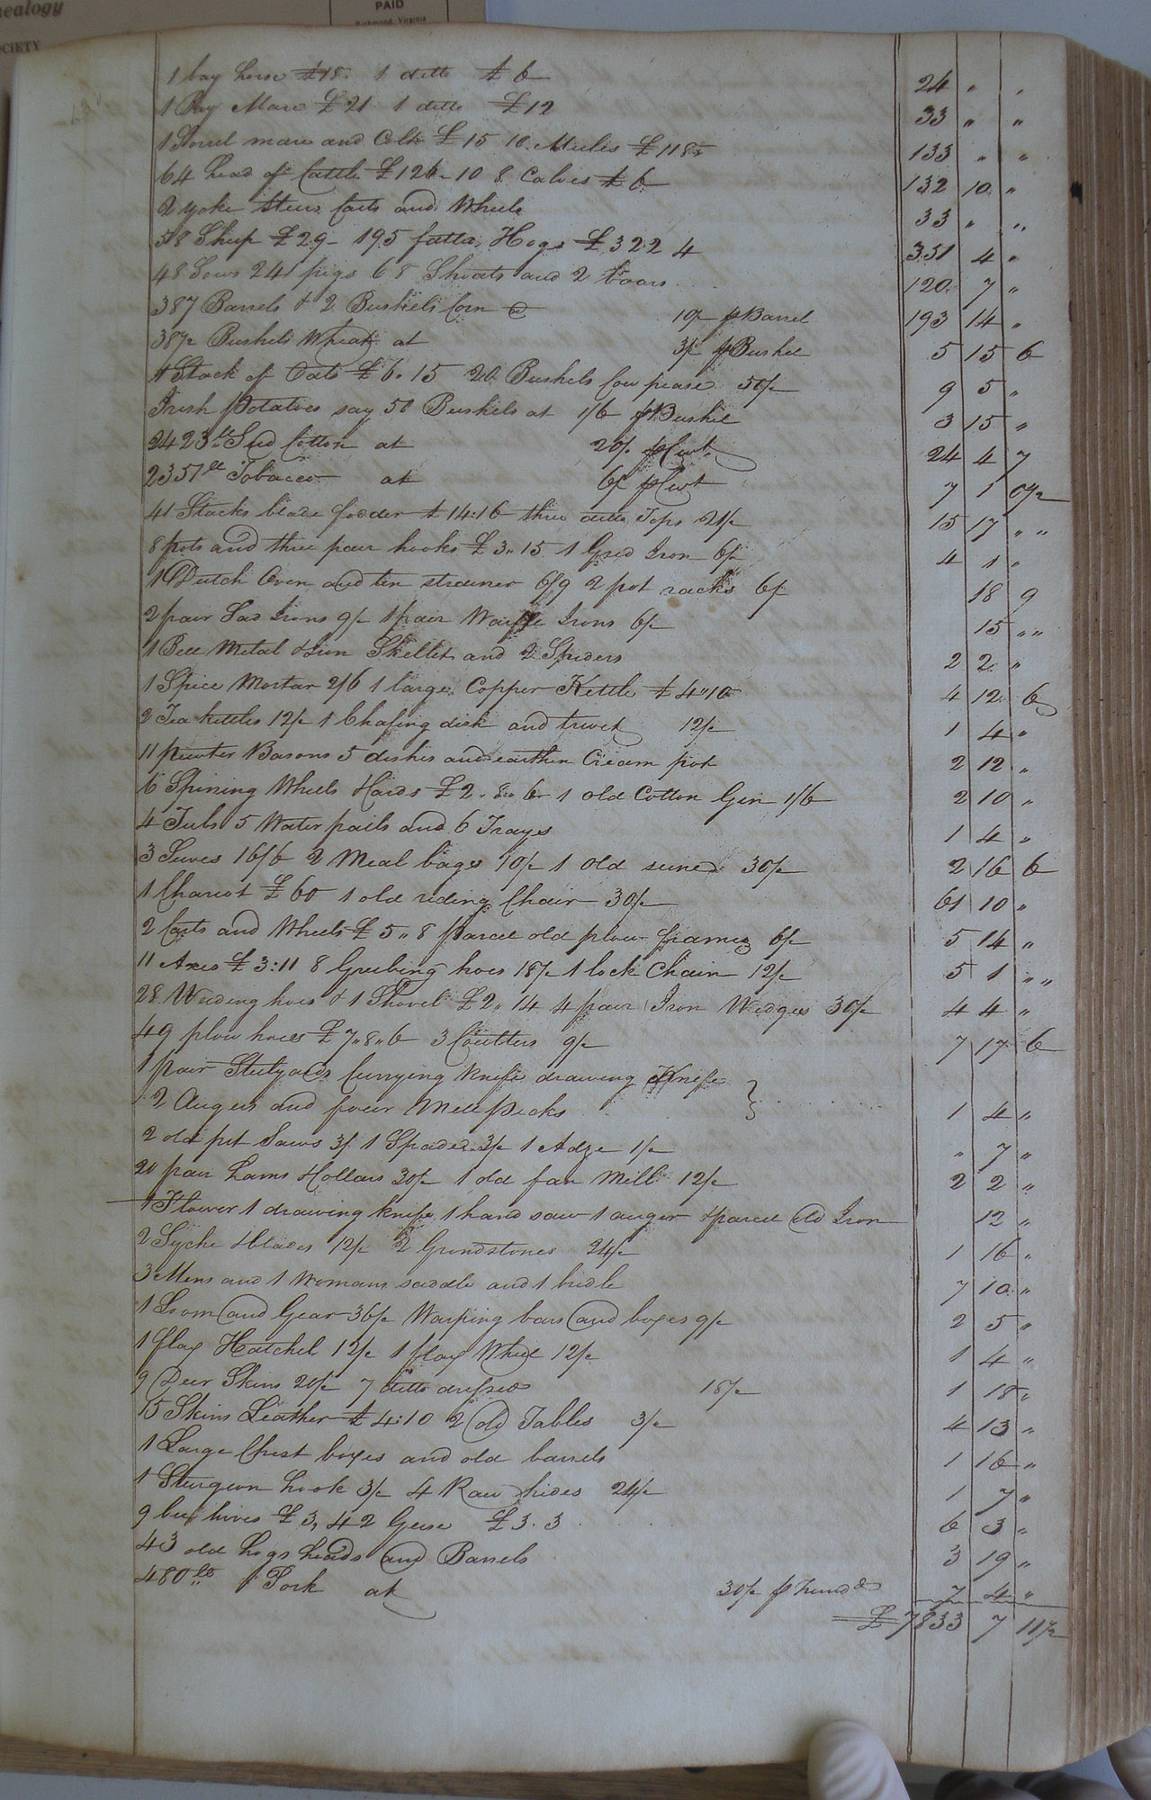 nealogy
OCIETY
PAID
Richmond, Virginia
1 bay horse £18. 1 ditto £6 24 " "
1 Bay Mare £21 1 ditto £12 33 " "
1 Sorrel mare and Colt £15 10 Mules £118 133 " "
64 head of Cattle £126-10 8 Calves £6 132 10 "
2 yoke Steers Carts and Wheels 33 " "
58 Sheep £29- 195 fatten Hogs £322 4 351 4 "
48 Sows 241 pigs 68 Shoats and 2 boars 120 7 "
387 Barrels & 2 Bushels Corn @ 10/ p Barrel 193 14 "
38½ Bushels Wheat at 3/ p Bushel 5 15 6
1 Stack of Oats £6.15 20 Bushels low pease 50/ 9 5 "
Irish Potatoes say 50 Bushels at 1/6 p Bushel 3 15 "
2423 lt Seed Cotton at 20/ p Cwt 24 4 7
2351 lt Tobacco at 6/ p Cwt 7 1 0½
41 Stacks blade fodder £14.16 three ditto Tops 21/ 15 17 "
8 pots and three pair hooks £3.15 1 Grid Iron 6/ 4 1 "
1 Dutch Oven and tin strainer 6/9 2 pot racks 6/ 18 9
2 pair Sad Irons 9/ 1 pair Waffle Irons 6/ 15 "
1 Bell Metal & Iron Skellet and 2 Spiders 2 2 "
1 Spice Mortar 2/6 1 large Copper Kettle £4"10 4 12 6
2 Tea kettles 12/ 1 Chafing dish and trivet 12/ 1 4 "
11 pewter Basons 5 dishes and earthen Cream pot 2 12 "
6 Spining Wheels & Cards £2.8.6 1 old Cotton Gin 1/6 2 10 "
4 Tubs 5 Water pails and 6 Trays 1 4 "
3 Sieves 16/6 2 Meal bags 10/ 1 old seine 30/ 2 16 6
1 Chariot £60 1 old riding Chair 30/ 61 10 "
2 Carts and Wheels £5"8 parcel old plow frames 6/ 5 14 "
11 Axes £3:11 8 Grubing hoes 18/ 1 lock Chain 12/ 5 1 "
28 Weeding hoes & 1 Shovel £2"14 4 pair Iron Wedges 30/ 4 4 "
49 plow hoes £7"8"6 3 Coulters 9/ 7 17 6
1 pair Stilyards Currying knife drawing Knife }
2 Augers and four Mill Picks 1 4 "
2 old pit Saws 3/ 1 Spade 3/ 1 Adze 1/ " 7 "
20 pair Hams & Collars 30/ 1 old fan Mill 12/ 2 2 "
1 drawing knife 1 hand saw 1 auger & parcel Old Iron 12 "
2 Syche blades 12/ 2 Grindstones 24/ 1 16 "
3 Mens and 1 Womans saddle and 1 bridle 7 10 "
1 Loom and Gear 36/ Warping bars and boxes 9/ 2 5 "
1 flax Hatchel 12/ 1 flax Wheel 12/ 1 4 "
9 Deer Skins 20/ 7 ditto dressed 18/ 1 18 "
15 Skins Leather £4:10 2 Old Tables 3/ 4 13 "
1 Large Chest boxes and old barrels 1 16 "
1 Sturgeon hook 3/ 4 Raw hides 24/ 1 7 "
9 bee hives £3, 42 Geese £3.3 6 3 "
43 old hogsheads and Barrels 3 19 "
480 lt Pork at 30/ p hundd 7 4 "
£7833 7 11½